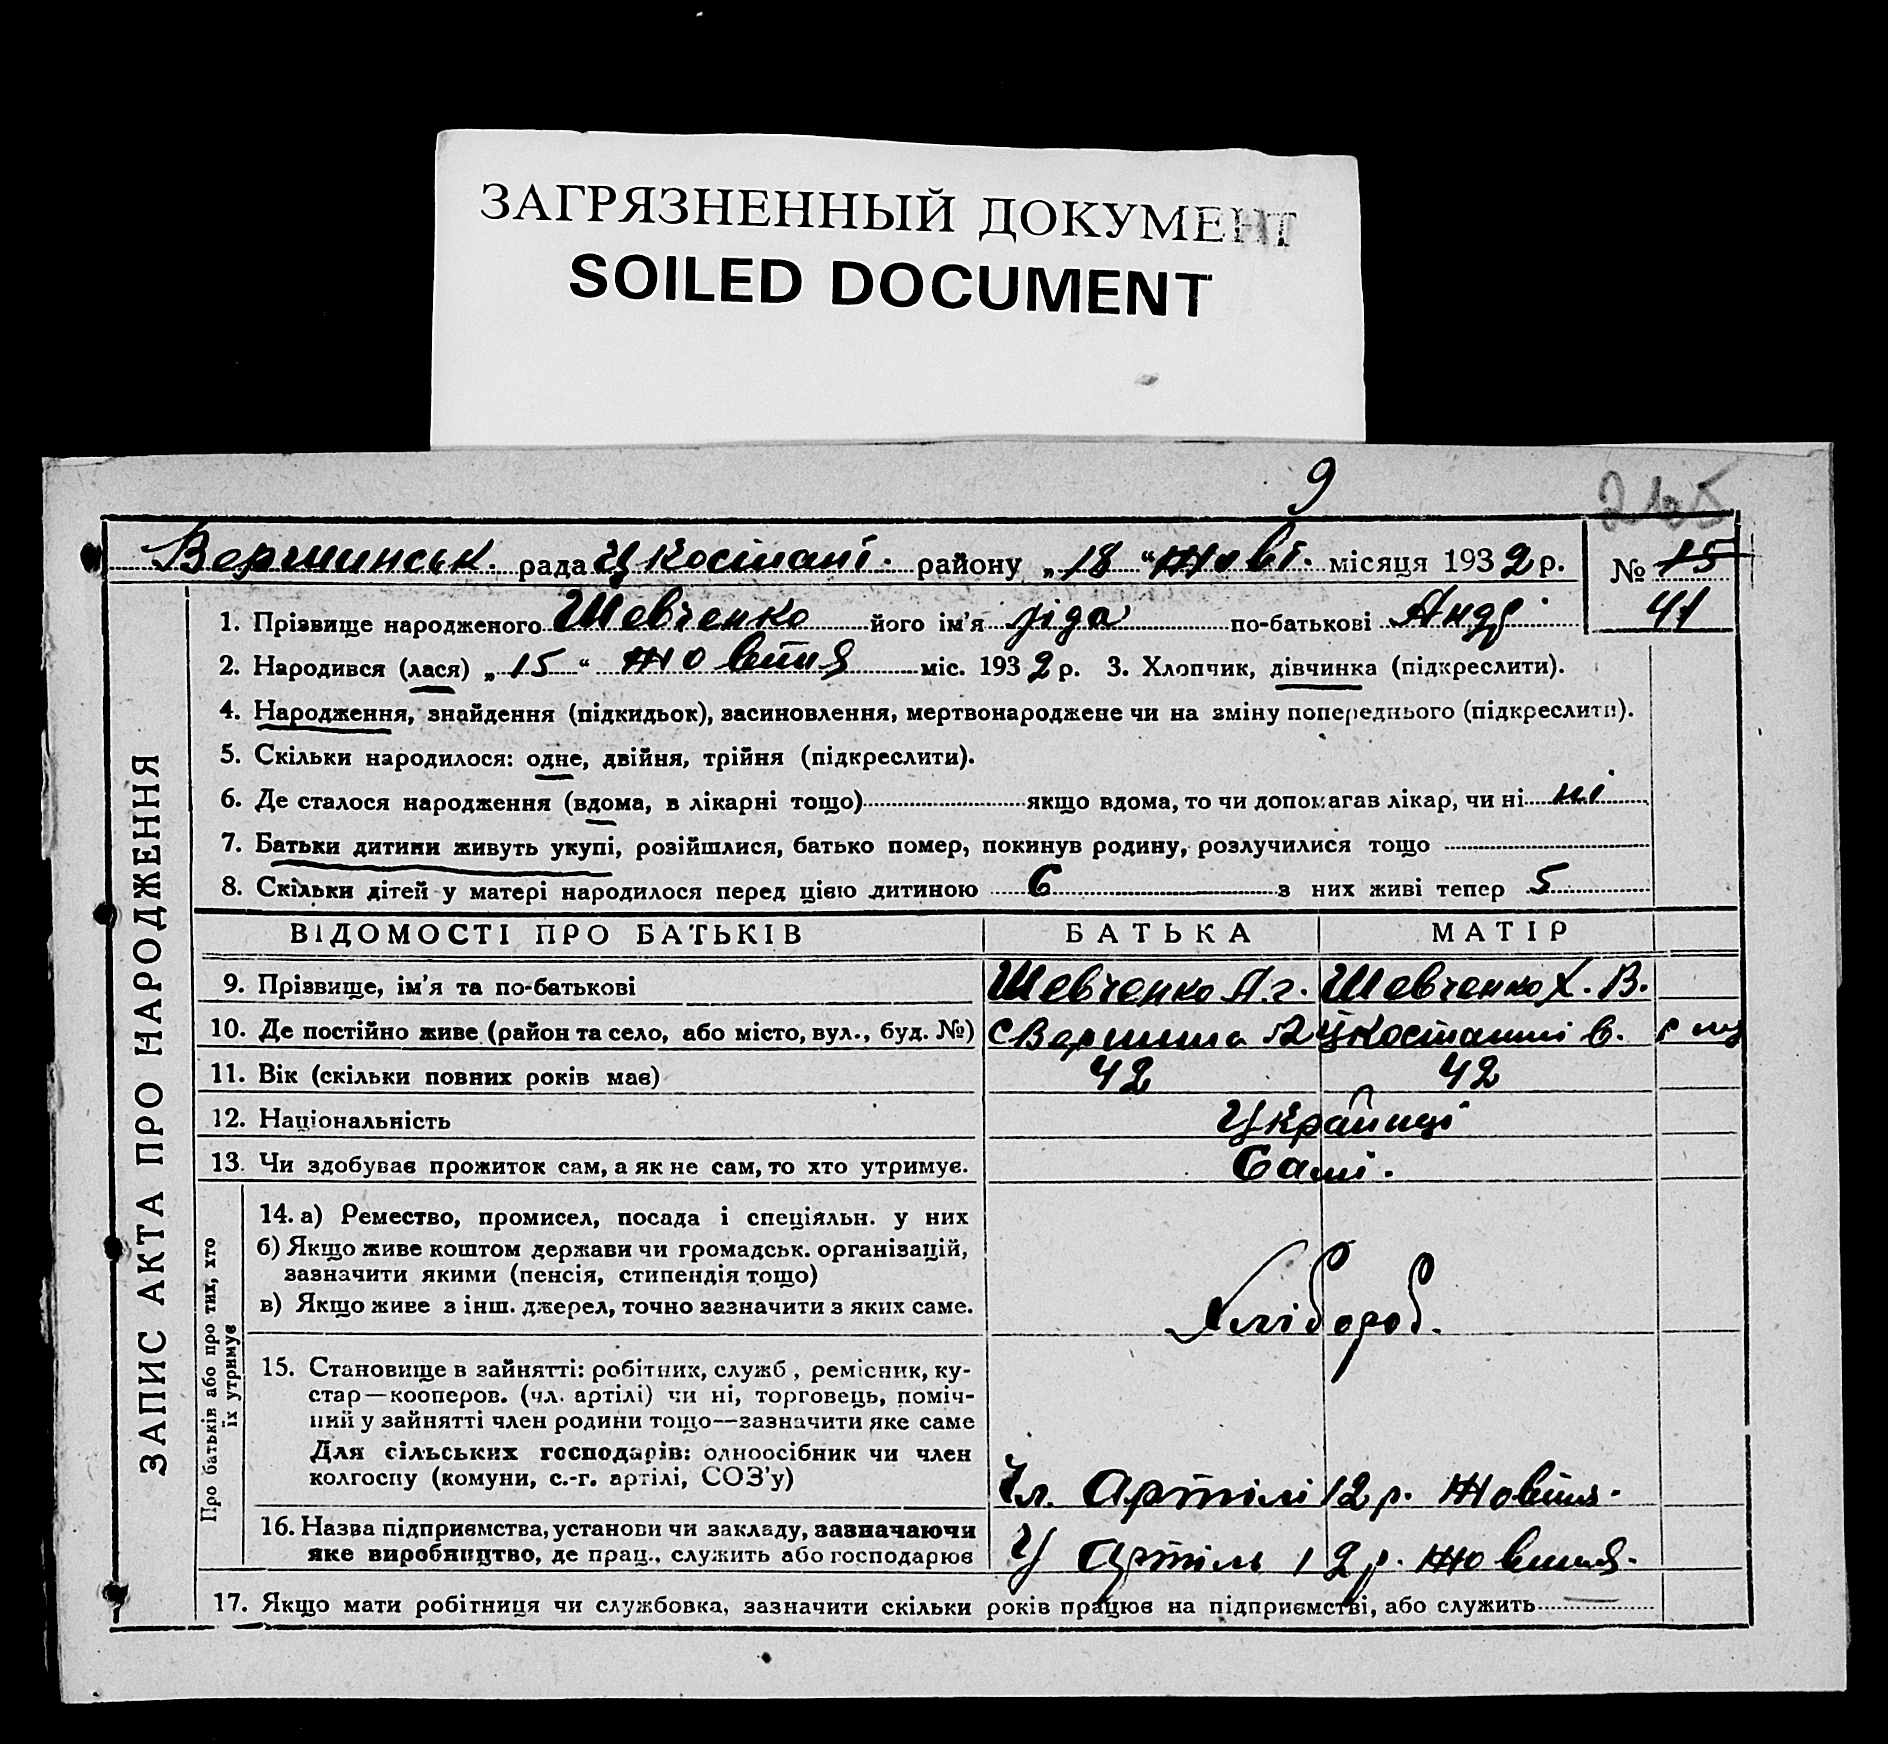 ЗАГРЯЗНЕННЫЙ ДОКУМЕНТ
SOILED DOCUMENT
9
Вершинськ. рада району „18“ Жовт. місяця 1932 р. № 15
41
1. Прізвище народженого Шевченко його ім'я Ліда по-батькові Андр
2. Народився (лася) „15“ жовтня міс. 1932 р. 3. Хлопчик, дівчинка (підкреслити).
4. Народження, знайдення (підкидьок), засиновлення, мертвонароджене чи на зміну попереднього (підкреслити).
5. Скільки народилося: одне, двійня, трійня (підкреслити).
6. Де сталося народження (вдома, в лікарні тощо) якщо вдома, то чи допомагав лікар, чи ні ні
7. Батьки дитини живуть укупі, розійшлися, батько помер, покинув родину, розлучилися тощо
8. Скільки дітей у матері народилося перед цією дитиною 6 з них живі тепер 5
ЗАПИС АКТА ПРО НАРОДЖЕННЯ
ВІДОМОСТІ ПРО БАТЬКІВ БАТЬКА МАТІР
9. Прізвище, ім'я та по-батькові Шевченко А. Г. Шевченко Х. В.
10. Де постійно живе (район та село, або місто, вул., буд. №) с Вершина
11. Вік (скільки повних років має) 42 42
12. Національність Українці
13. Чи здобував прожиток сам, а як не сам, то хто утримує. Самі.
Про батьків або про тих, хто
їх утримує
14. а) Ремество, промисел, посада і спеціяльн. у них
б) Якщо живе коштом держави чи громадськ. організацій,
зазначити якими (пенсія, стипендія тощо)
в) Якщо живе з інш. джерел, точно зазначити з яких саме.
Хлібороб.
15. Становище в зайнятті: робітник, служб, ремісник, ку-
стар—кооперов. (чл. артілі) чи ні, торговець, поміч-
ний у зайнятті член родини тощо—зазначити яке саме
Для сільських господарів: одноосібник чи член
колгоспу (комуни, с.-г. артілі, СОЗ'у) Чл. Артілі 12 р. Жовтня.
16. Назва підприємства, установи чи закладу, зазначаючи
яке виробництво, де прац., служить або господарює У Артіль 12 р. жовтня.
17. Якщо мати робітниця чи службовка, зазначити скільки років працює на підприємстві, або служить